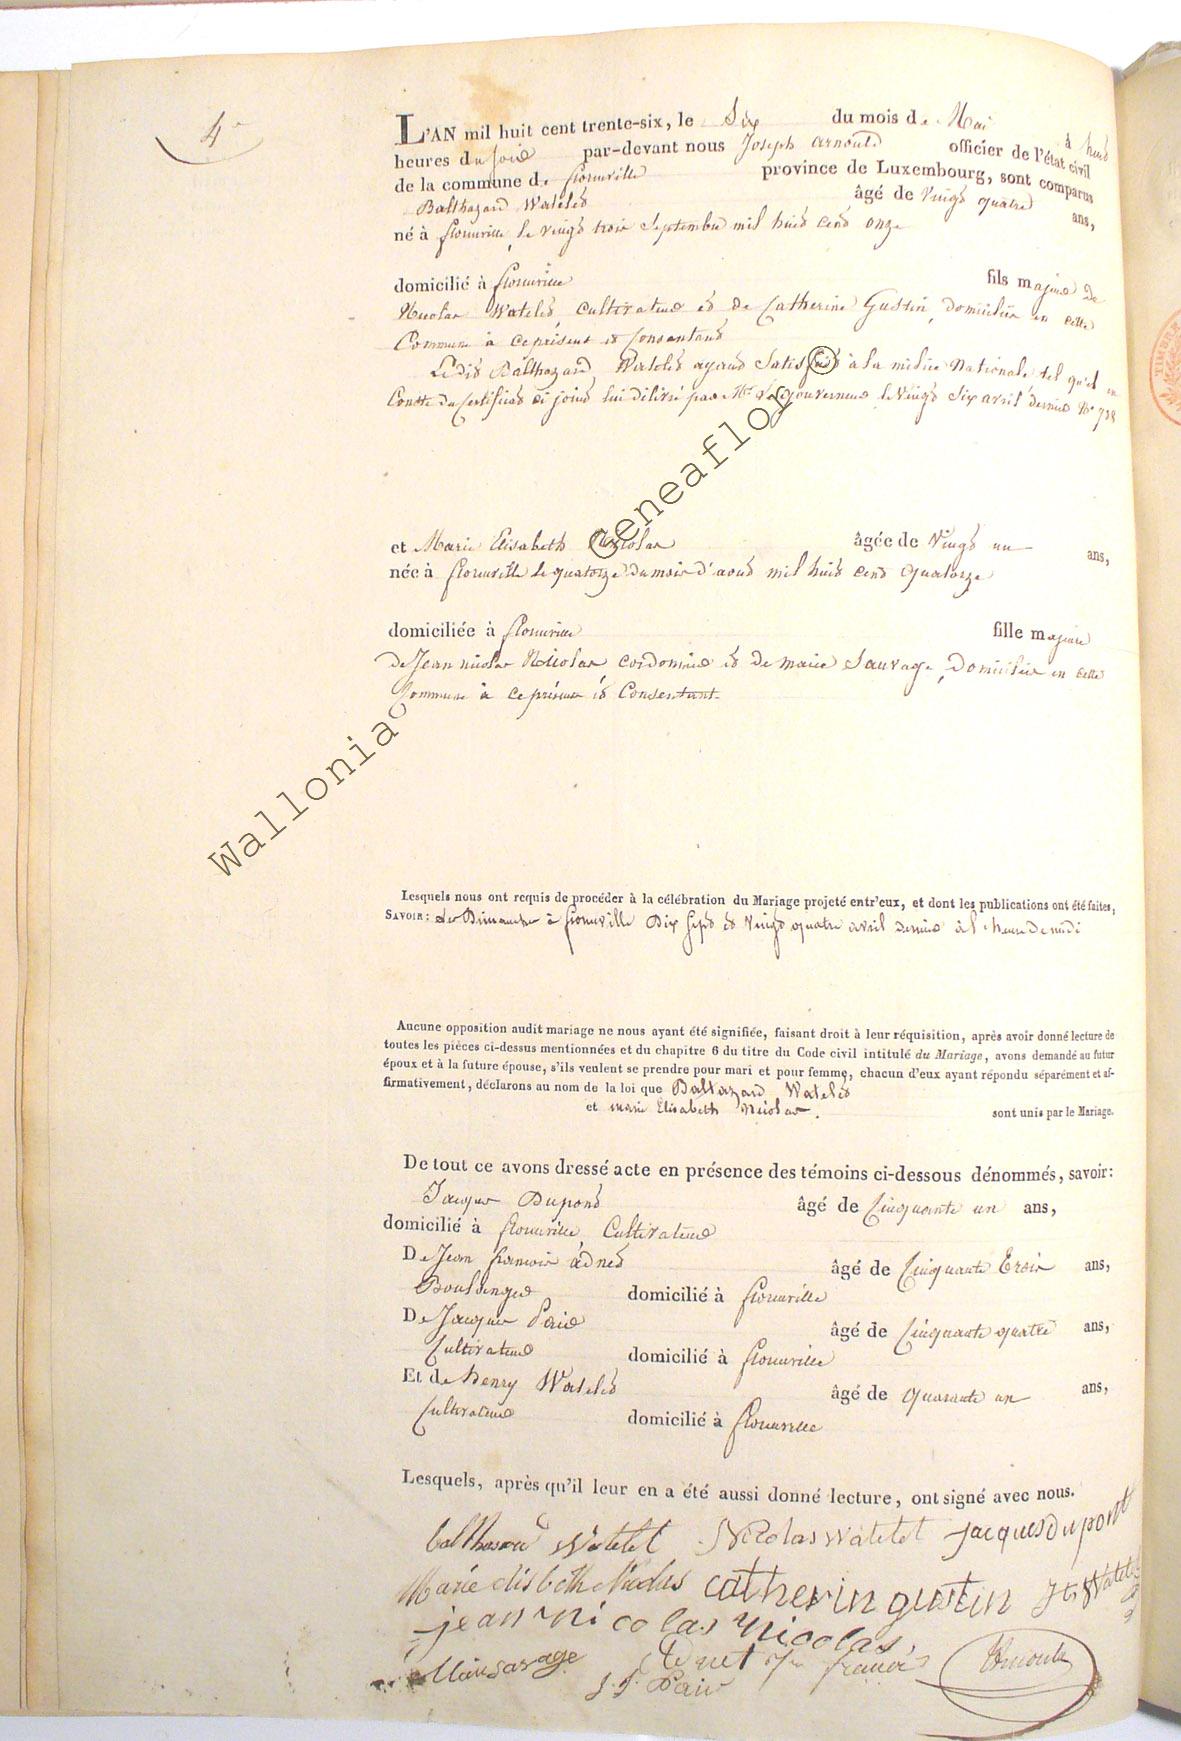 4e
L'AN mil huit cent trente-six, le Six du mois de Mai à huit
heures du soir par-devant nous Joseph Arnould officier de l'état civil
de la commune de florenville province de Luxembourg, sont comparus
Balthazard Watelet âgé de vingt quatre ans,
né à florenville, le vingt trois Septembre mil huit cent onze
domicilié à florenville fils majeur de
Nicolas Watelet, cultivateur et de Catherine Gustin, domiciliés en cette
Commune à ce présent et Consentants
Ledit Balthazard Watelet ayant Satisfait à la milice Nationale tel qu'il en
Conste du Certificat ci joint lui délivré par Mr Le gouverneur le Vingt Six avril dernier No 738
et Marie Elisabeth Nicolas âgée de Vingt un ans,
née à florenville le quatorze du mois d'aout mil huit cent quatorze
domiciliée à florenville fille majeure
de Jean nicolas Nicolas cordonnier et de marie Sauvage, Domiciliés en cette
Commune à ce présent et Consentant
Lesquels nous ont requis de procéder à la célébration du Mariage projeté entr'eux, et dont les publications ont été faites,
SAVOIR: Les Dimanches à florenville Dix Sept et Vingt quatre avril dernier à l'heure de midi
Aucune opposition audit mariage ne nous ayant été signifiée, faisant droit à leur réquisition, après avoir donné lecture de
toutes les pièces ci-dessus mentionnées et du chapitre 6 du titre du Code civil intitulé du Mariage, avons demandé au futur
époux et à la future épouse, s'ils veulent se prendre pour mari et pour femme, chacun d'eux ayant répondu séparément et af-
firmativement, déclarons au nom de la loi que Baltazard Watelet
et marie Elisabeth Nicolas. sont unis par le Mariage.
De tout ce avons dressé acte en présence des témoins ci-dessous dénommés, savoir:
Jacques Dupont âgé de Cinquante un ans,
domicilié à florenville Cultivateur
De Jean francois adnet âgé de Cinquante Trois ans,
Boulanger domicilié à florenville
De Jacques Pairé âgé de Cinquante quatre ans,
Cultivateur domicilié à florenville
Et de henry Watelet âgé de quarante un ans,
Cultivateur domicilié à florenville
Lesquels, après qu'il leur en a été aussi donné lecture, ont signé avec nous.
balthasard Watelet Nicolas watelet jacques dupont
Marie elisbeth Nicolas catherin gustin Watelet
jean nicolas nicolas
sauvage adnet francois Arnould
J. J. Pairé
Wallonia © Geneaflor ©